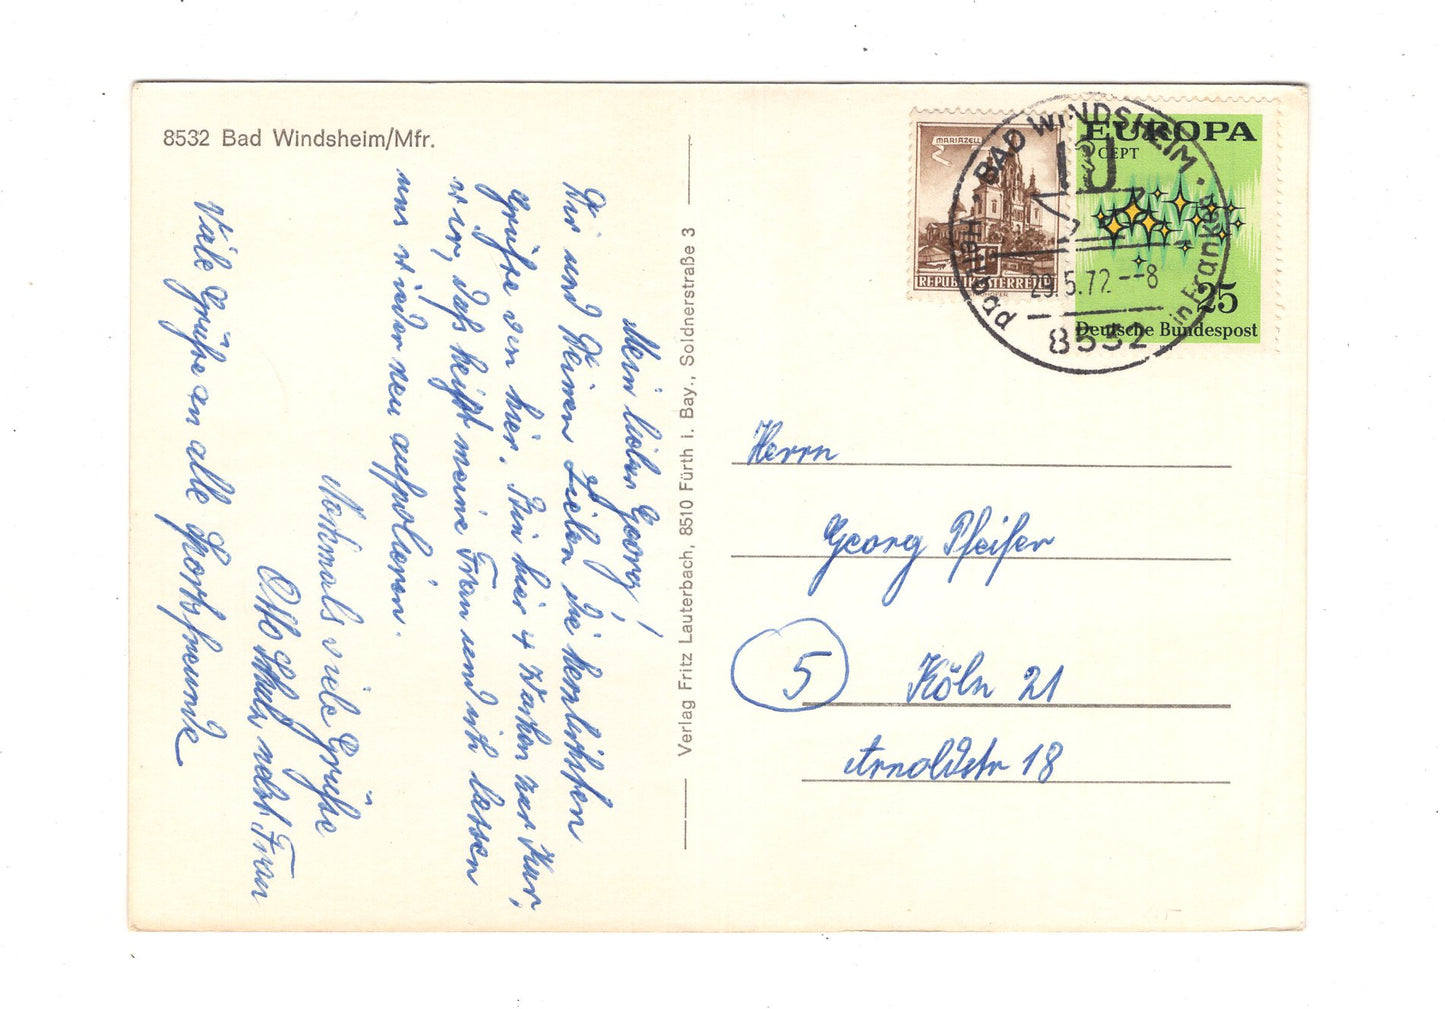 8532 Bad Windsheim/Mfr.
Mein lieber Georg!
Dir und Deinen Lieben die herzlichsten
Grüße von hier. Bin hier 4 Wochen zur Kur,
wir, daß heißt meine Frau und ich lassen
uns wieder neu aufpolieren.
Nochmals viele Grüße
Otto Schulz nebst Frau
Viele Grüße an alle Sportsfreunde
Verlag Fritz Lauterbach, 8510 Fürth i. Bay., Soldnerstraße 3
MARIAZELL
REPUBLIK ÖSTERREICH
EUROPA
CEPT
25
Deutsche Bundespost
BAD WINDSHEIM
29.5.72.--8
8532
Heilbad in Franken
Herrn
Georg Pfeifer
5 Köln 21
Arnoldstr 18